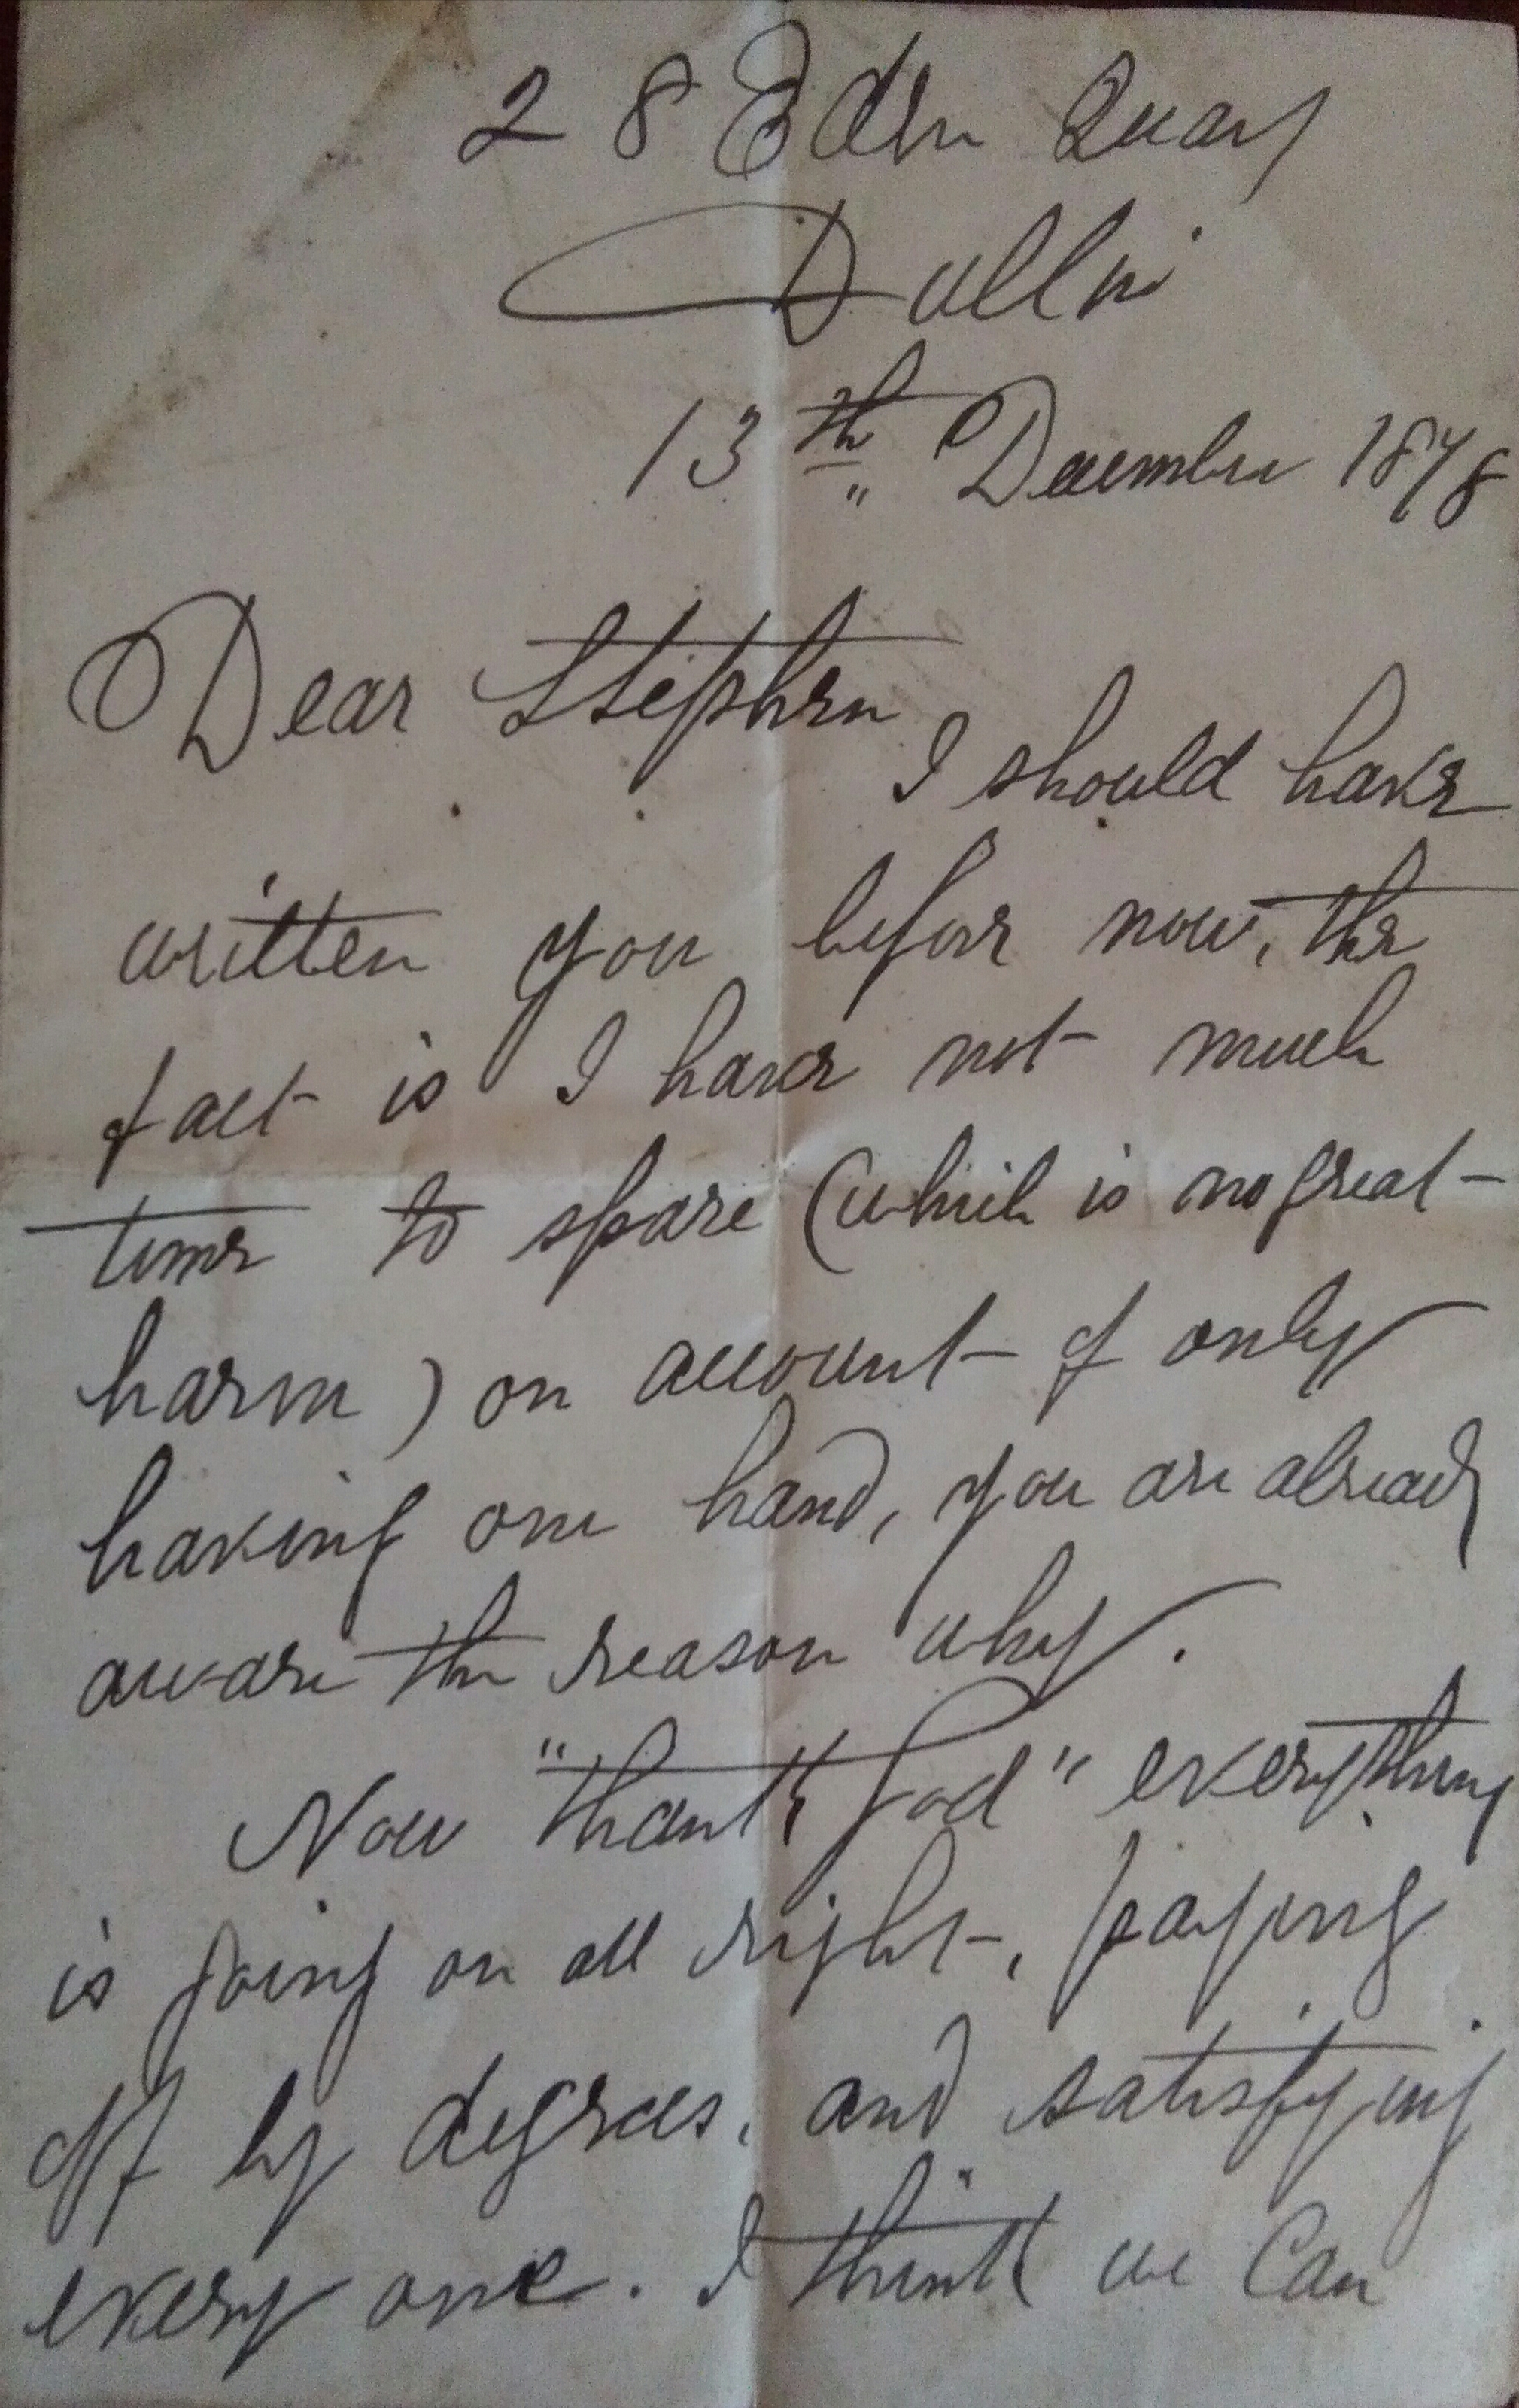 28 Eden Quay
Dublin
13th December 1878
Dear Stephen
I should have
written you before now, the
fact is I have not much
time to spare (which is no great
harm) on account of only
having one hand, you are already
aware the reason why.
Now "thank God" everything
is going on all right, paying
off by degrees, and satisfying
every one. I think we can